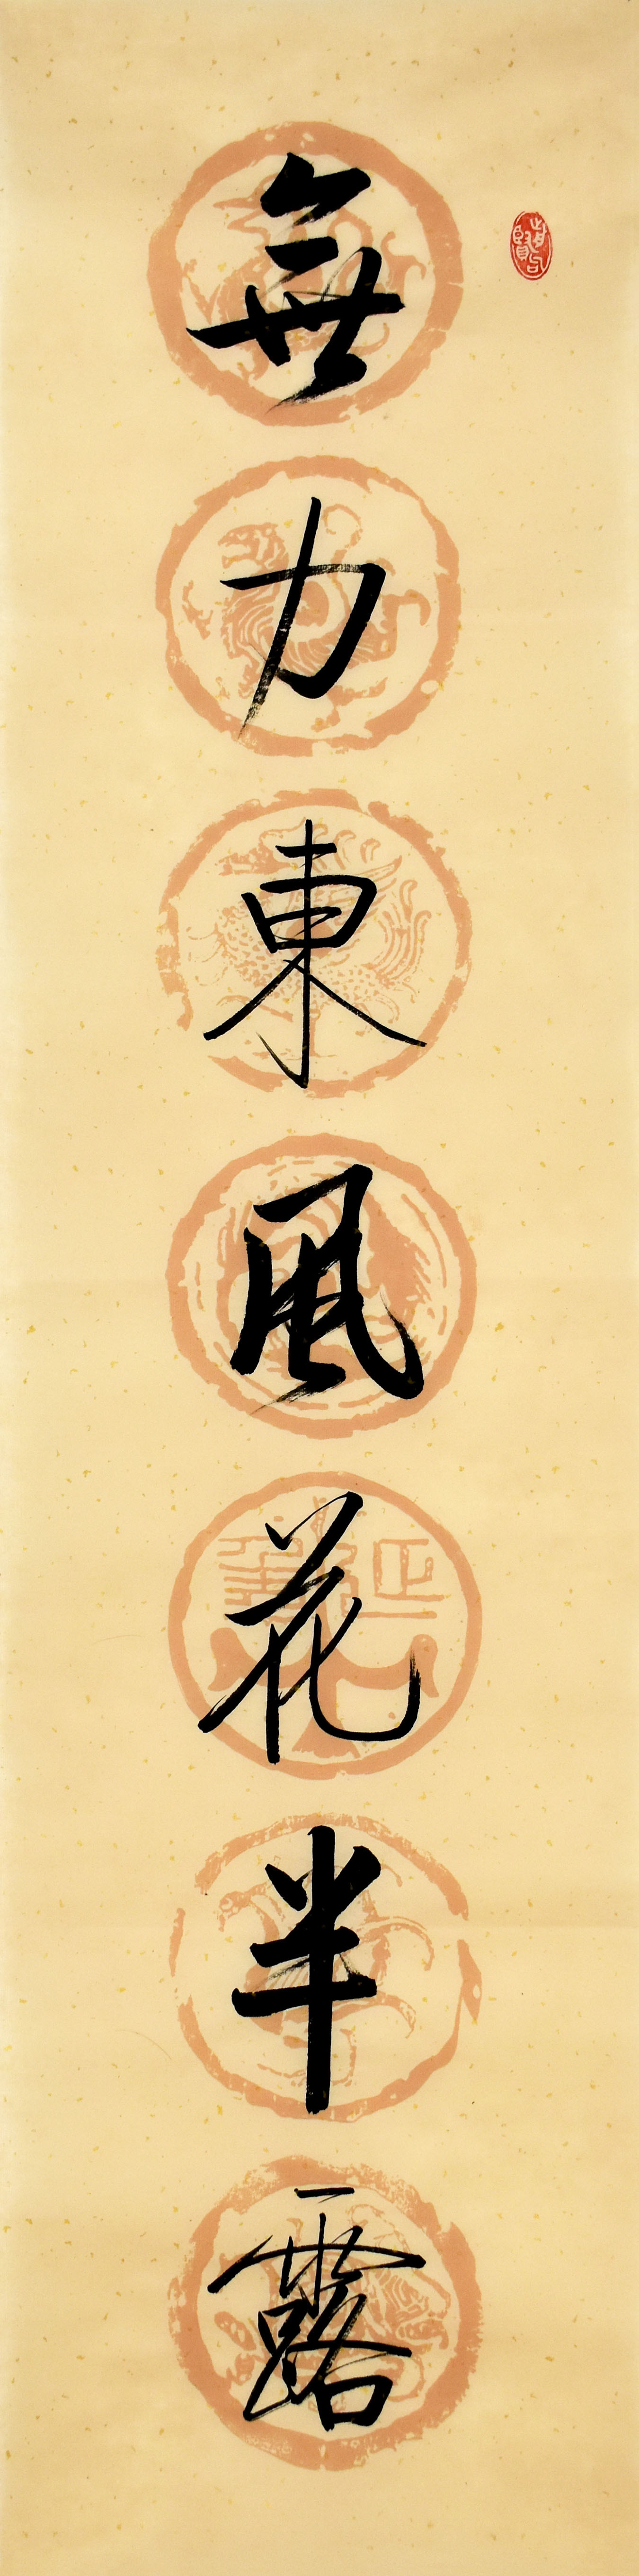 無力東風花半露